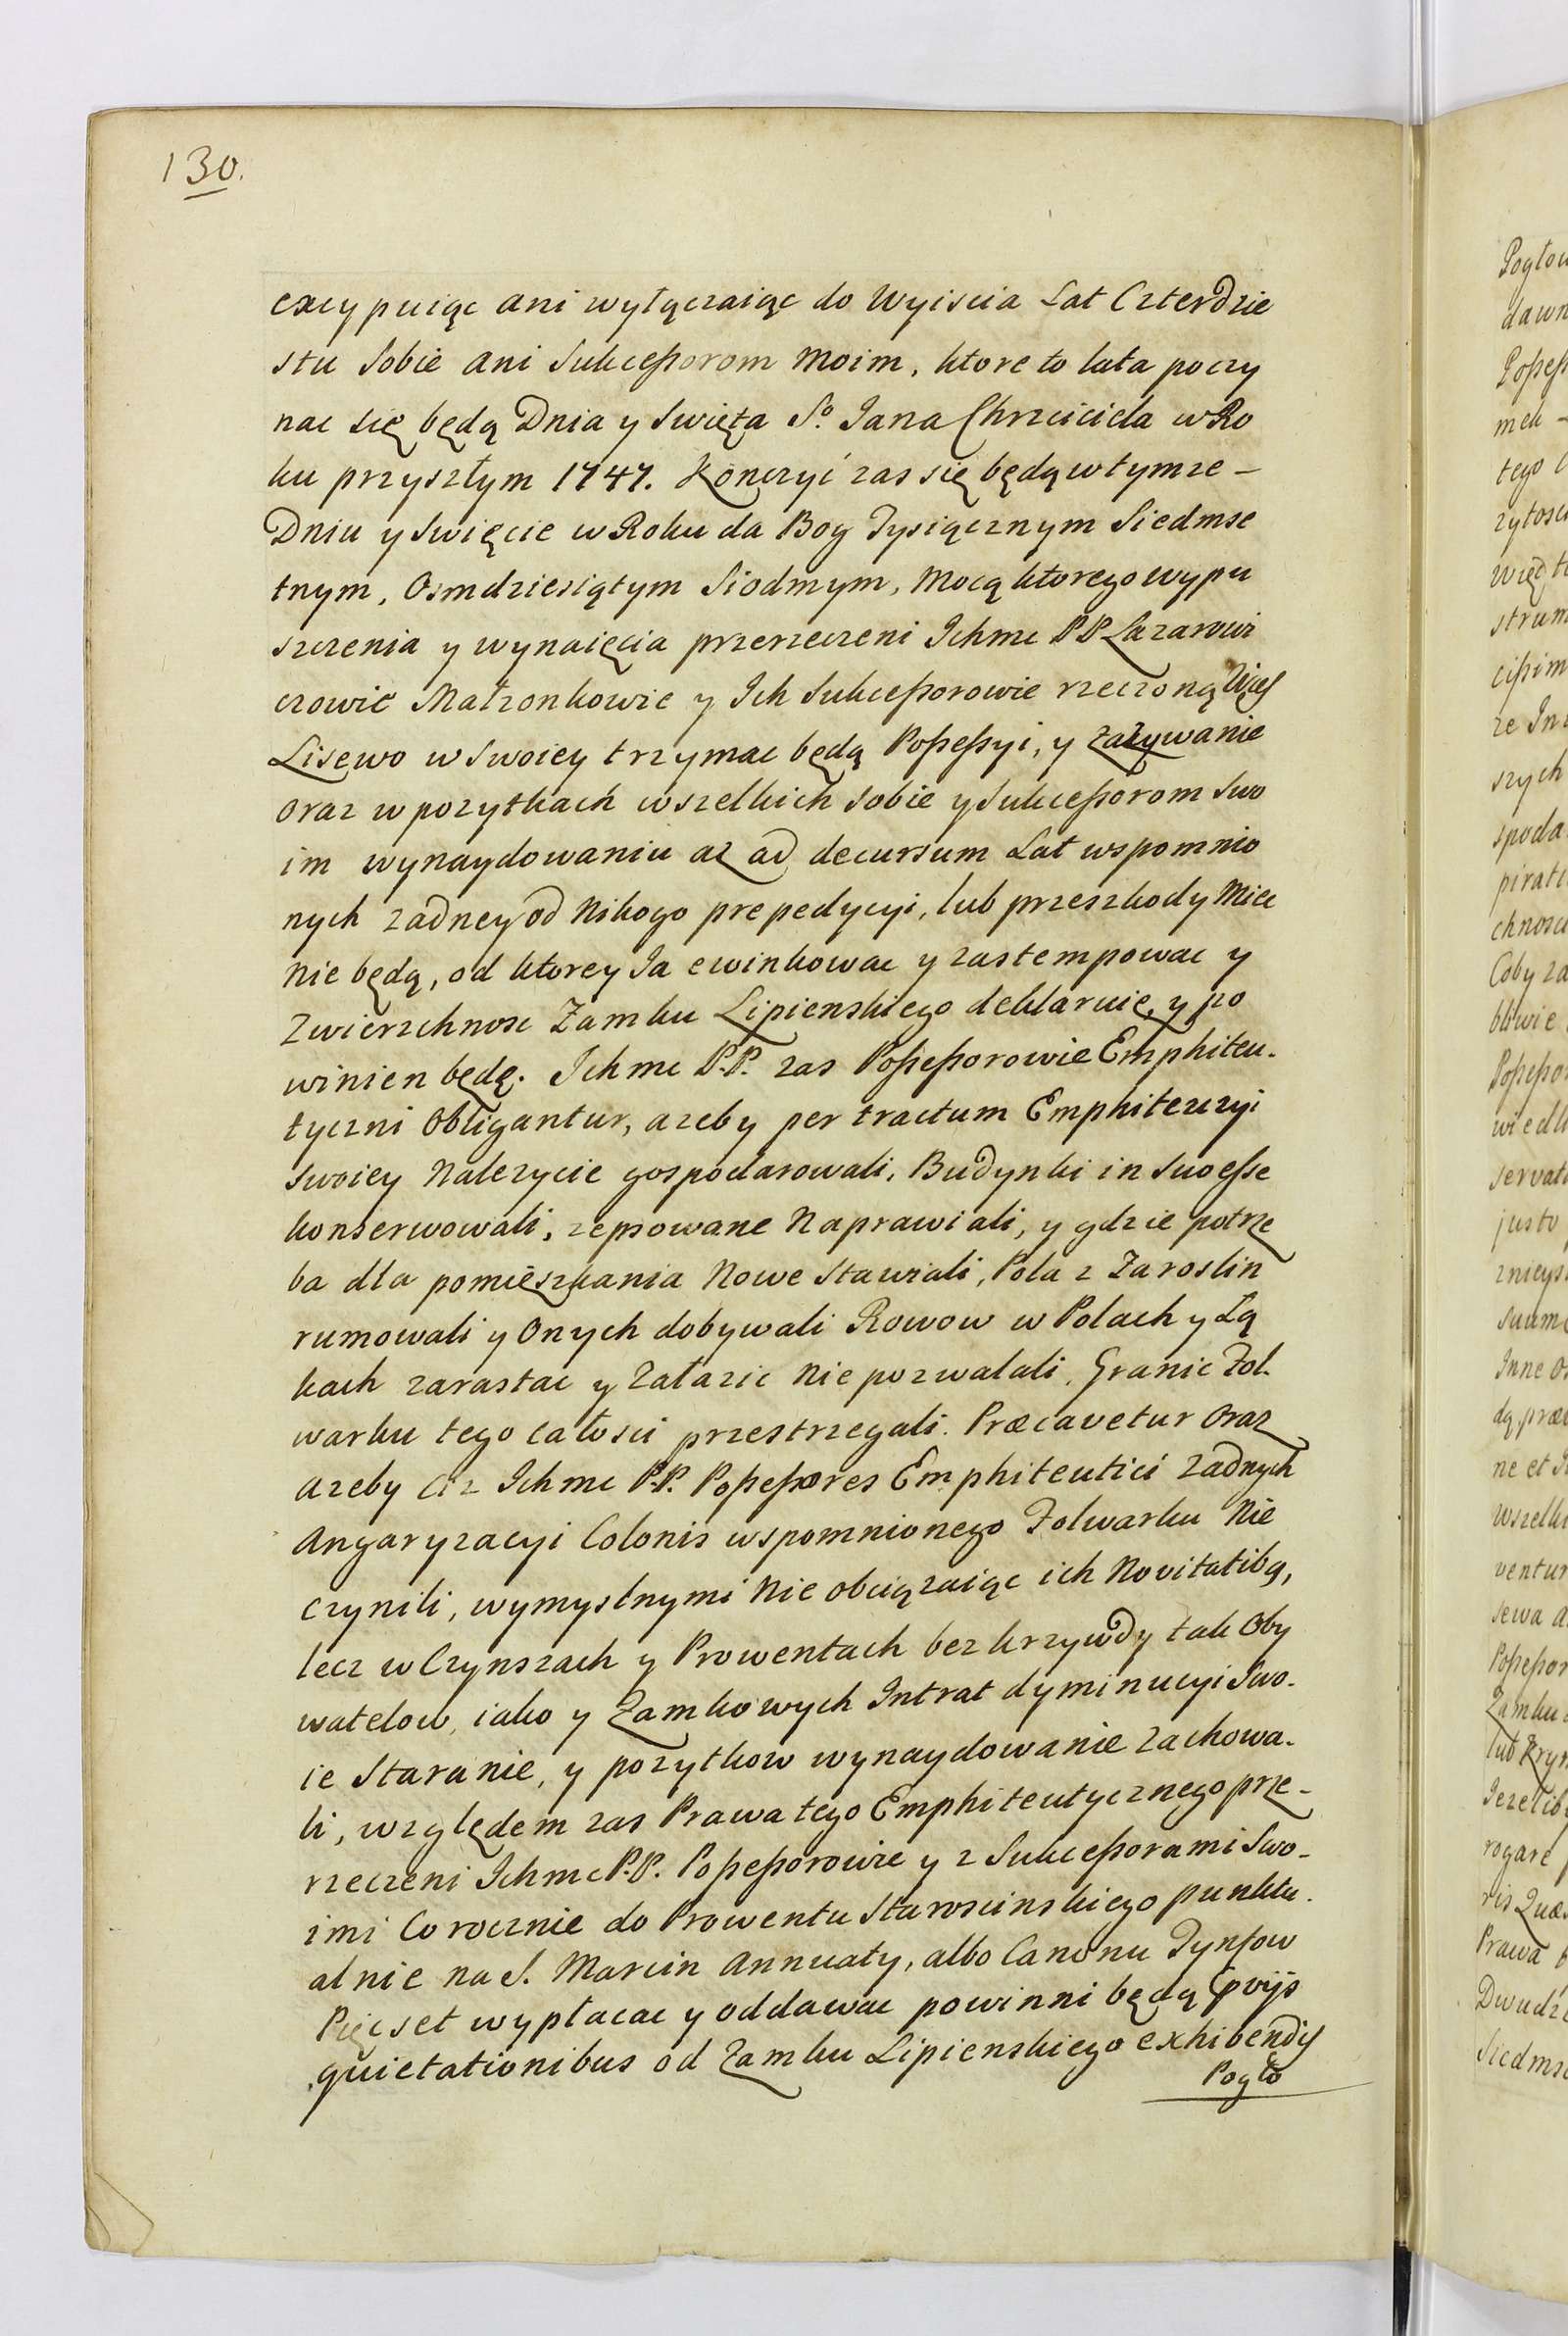 130.
excypuiąc ani wyłączaiąc do Wyiscia Lat Czterdzie
stu Sobie ani Sukceßorom Moim, ktore to lata poczy
nac się będą Dnia y Swięta S.º Jana Chrzciciela w Ro
ku przyszłym 1747. Konczyć zas się będą w tymze –
Dniu y Swięcie w Roku da Bog Tysiącznym Siedmse
tnym, Osmdziesiątym Siodmym, Mocą ktorego wypu
szczenia y wynaięcia przerzeczeni Ichmc PP Lazarowi
czowie Małzonkowie y Ich Sukceßorowie rzeczoną Wieś
Lisewo w Swoiey trzymac będą Poßeßyi, y Zażywanie
oraz w pozytkach wszelkich Sobie y Sukceßorom Swo
im wynaydowaniu az ad decursum Lat wspomnio
nych zadney od Nikogo prepedycyi, lub przeszkody Miec
Nie będą, od ktorey Ja ewinkowac y zastempowac y
Zwierzchnosc Zamku Lipienskiego deklaruię, y po
winien będę. Ichmc P.P. zas Poßeßorowie Emphiteu-
tyczni Obligantur, azeby per tractum Emphitezczyi
Swoiey Nalezycie gospodarowali, Budynki in Suo eße
konserwowali, zepsowane Naprawiali, y gdzie potrze
ba dla pomieszkania Nowe Stawiali, Pola z Zaroslin
rumowali y Onych dobywali Rowow w Polach y Łą
kach zarastac y Załazic Nie pozwalali, Granic Fol-
warku tego całosci przestrzegali. Præcavetur Oraz
azeby Ciz Ichmc P.P. Poßeßores Emphiteutici Zadnych
Angaryzacyi Colonis wspomnionego Folwarku Nie
czynili, wymyslnymi Nie obciązaiąc ich Novitatibq,
lecz w Czynszach y Prowentach bez krzywdy tak Oby
watelow, iako y Zamkowych Intrat dyminucyi Swo-
ie Staranie, y pozytkow wynaydowanie zachowa-
li, względem zas Prawa tego Emphiteutycznego prze-
rzeczeni Ichmc P.P. Poßeßorowie y z Sukceßorami Swo-
imi Corocznie do Prowentu Staroscinskiego punktu-
alnie na S. Marcin Annuaty, albo Canonu Tynfow
Pięcset wypłacac y oddawac powinni będą
quietationibus od Zamku Lipienskiego exhibendis
Pogło